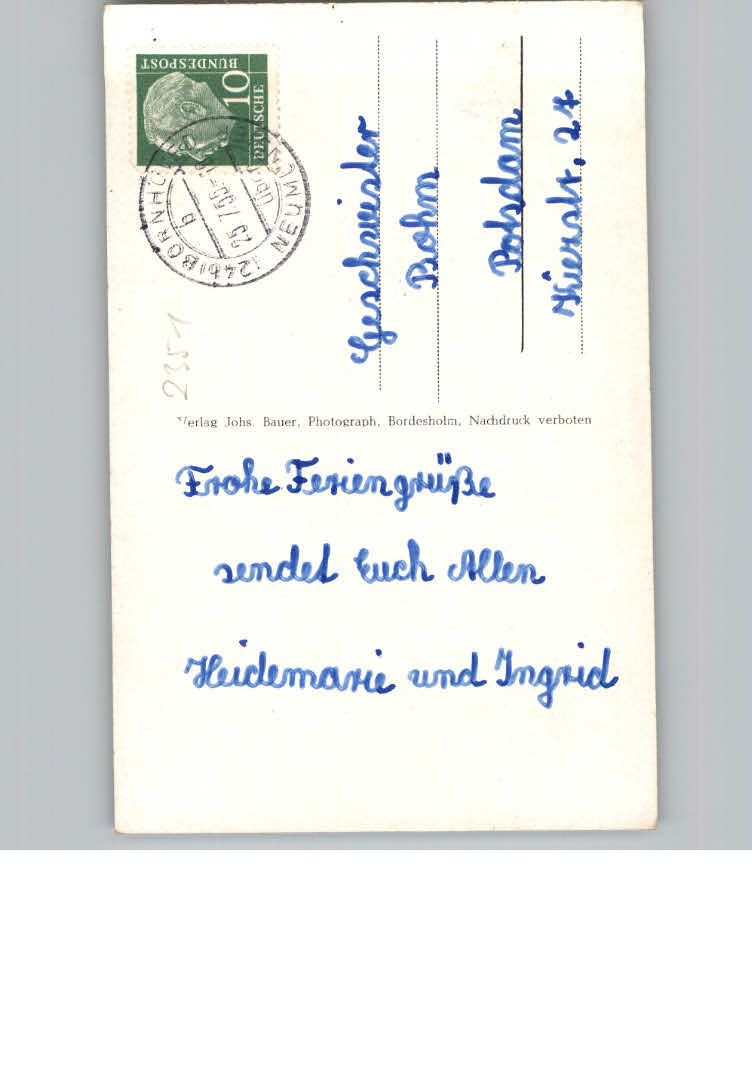 DEUTSCHE
BUNDESPOST
10
(24b) BORNHÖ
NEUMÜN
25.7.55
b
2351
Geschwister
Bohm
Potsdam
Kierstr. 27
Verlag Johs. Bauer, Photograph, Bordesholm, Nachdruck verboten
Frohe Feriengrüße
sendet Euch Allen
Heidemarie und Ingrid